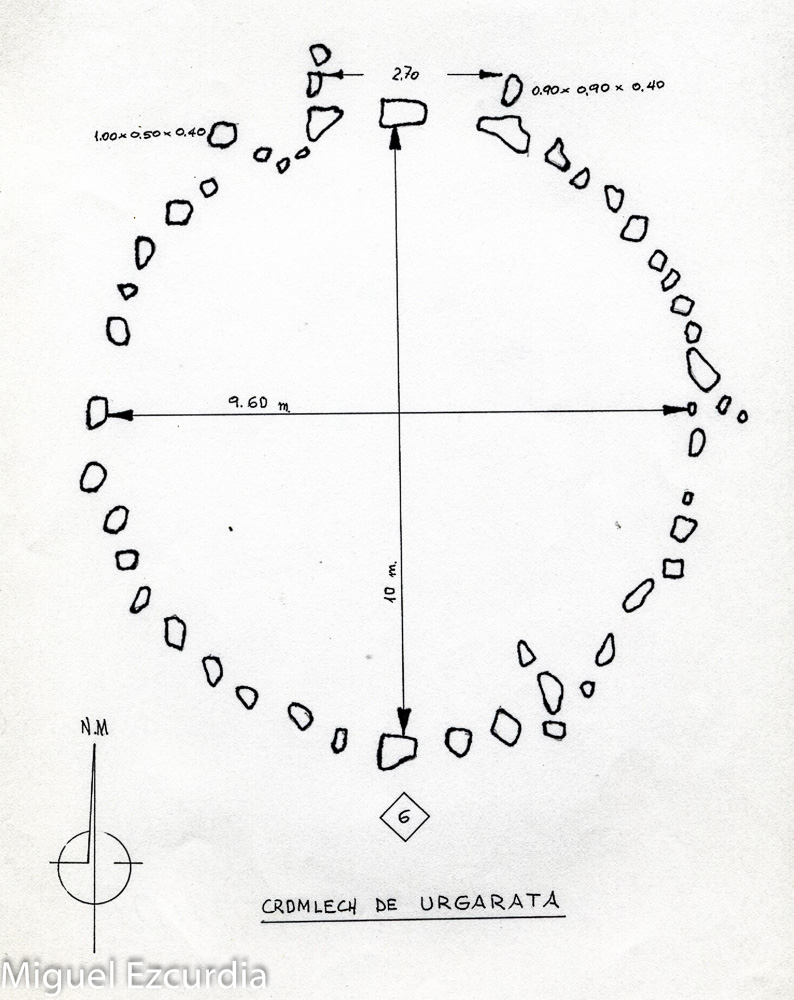 2,70
0.90 x 0,90 x 0,40
1.00 x 0,50 x 0.40
9.60 m.
10 m.
N.M
6
CROMLECH DE URGARATA
Miguel Ezcurdia